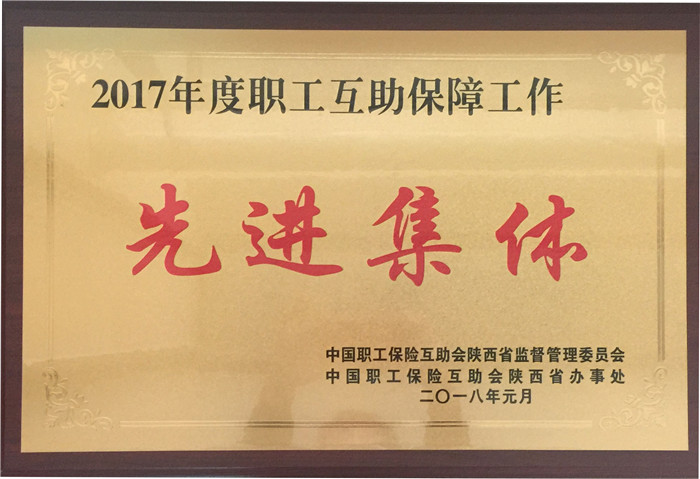 2017年度职工互助保障工作
先进集体
中国职工保险互助会陕西省监督管理委员会
中国职工保险互助会陕西省办事处
二〇一八年元月